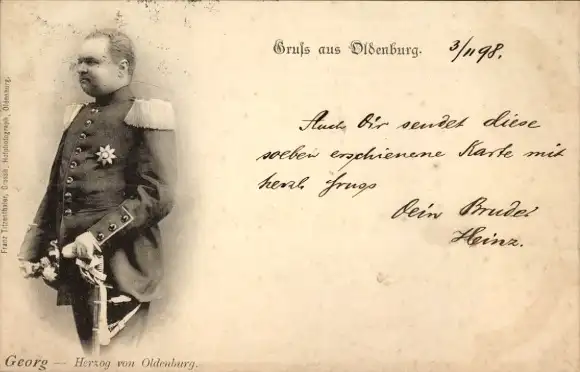 Gruſs aus Oldenburg. 3/11 98.
Auch Dir sendet diese
soeben erschienene Karte mit
herzl. Gruss
Dein Bruder
Heinz.
Franz Titzenthaler, Grossh. Hofphotograph, Oldenburg.
Georg — Herzog von Oldenburg.